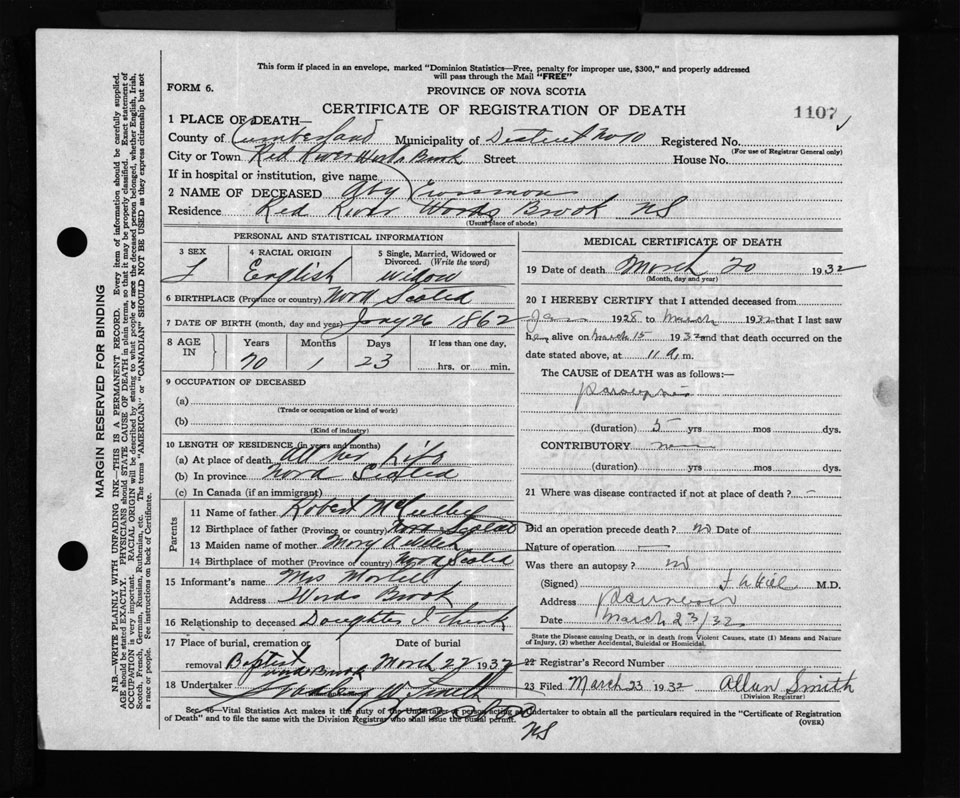 This form if placed in an envelope, marked "Dominion Statistics—Free, penalty for improper use, $300," and properly addressed
will pass through the Mail "FREE"
FORM 6.
PROVINCE OF NOVA SCOTIA
CERTIFICATE OF REGISTRATION OF DEATH
1107
1 PLACE OF DEATH—
County of Cumberland Municipality of District No 10 Registered No.
(For use of Registrar General only)
City or Town Red River Brook Street House No.
If in hospital or institution, give name
2 NAME OF DECEASED Aby
Residence Red River Words Brook NS
(Usual place of abode)
PERSONAL AND STATISTICAL INFORMATION
3 SEX
f
4 RACIAL ORIGIN
English
5 Single, Married, Widowed or
Divorced. (Write the word)
widow
6 BIRTHPLACE (Province or country) Nova Scotia
7 DATE OF BIRTH (month, day and year) 26 1862
8 AGE
IN
Years Months Days If less than one day,
70 1 23 hrs. or min.
9 OCCUPATION OF DECEASED
(a)
(Trade or occupation or kind of work)
(b)
(Kind of industry)
10 LENGTH OF RESIDENCE (in years and months)
(a) At place of death All her Life
(b) In province Nova Scotia
(c) In Canada (if an immigrant)
Parents
11 Name of father Robert
12 Birthplace of father (Province or country) Nova Scotia
13 Maiden name of mother Mary
14 Birthplace of mother (Province or country) Nova Scotia
15 Informant's name Mrs
Address Words Brook
16 Relationship to deceased Daughter I think
17 Place of burial, cremation or Date of burial
removal Baptist Brook March 22 1932
18 Undertaker Smith
NS
See. 46—Vital Statistics Act makes it the duty of the Undertaker or person acting as Undertaker to obtain all the particulars required in the "Certificate of Registration
of Death" and to file the same with the Division Registrar who shall issue the burial permit. (OVER)
MEDICAL CERTIFICATE OF DEATH
19 Date of death March 20 1932
(Month, day and year)
20 I HEREBY CERTIFY that I attended deceased from
Jan 1928 to March 1932 that I last saw
h alive on March 15 1932 and that death occurred on the
date stated above, at 11 a. m.
The CAUSE OF DEATH was as follows:—
(duration) 5 yrs mos dys.
CONTRIBUTORY
(duration) yrs mos dys.
21 Where was disease contracted if not at place of death? —
Did an operation precede death? no Date of
Nature of operation —
Was there an autopsy? no
(Signed) M.D.
Address
Date March 23/32
State the Disease causing Death, or in death from Violent Causes, state (1) Means and Nature
of Injury, (2) whether Accidental, Suicidal or Homicidal.
22 Registrar's Record Number
23 Filed March 23 1932 Allan Smith
(Division Registrar)
MARGIN RESERVED FOR BINDING
N.B.—WRITE PLAINLY WITH UNFADING INK—THIS IS A PERMANENT RECORD. Every item of information should be carefully supplied.
AGE should be stated EXACTLY. PHYSICIANS should STATE CAUSE OF DEATH in plain terms, so that it may be properly classified. Exact statement of
OCCUPATION is very important. RACIAL ORIGIN will be described by stating to what people or race the deceased person belonged, whether English, Irish,
Scotch, French, German, Russian, Ruthenian, etc. The terms "AMERICAN" or "CANADIAN" SHOULD NOT BE USED as they express citizenship but not
a race or people. See instructions on back of Certificate.